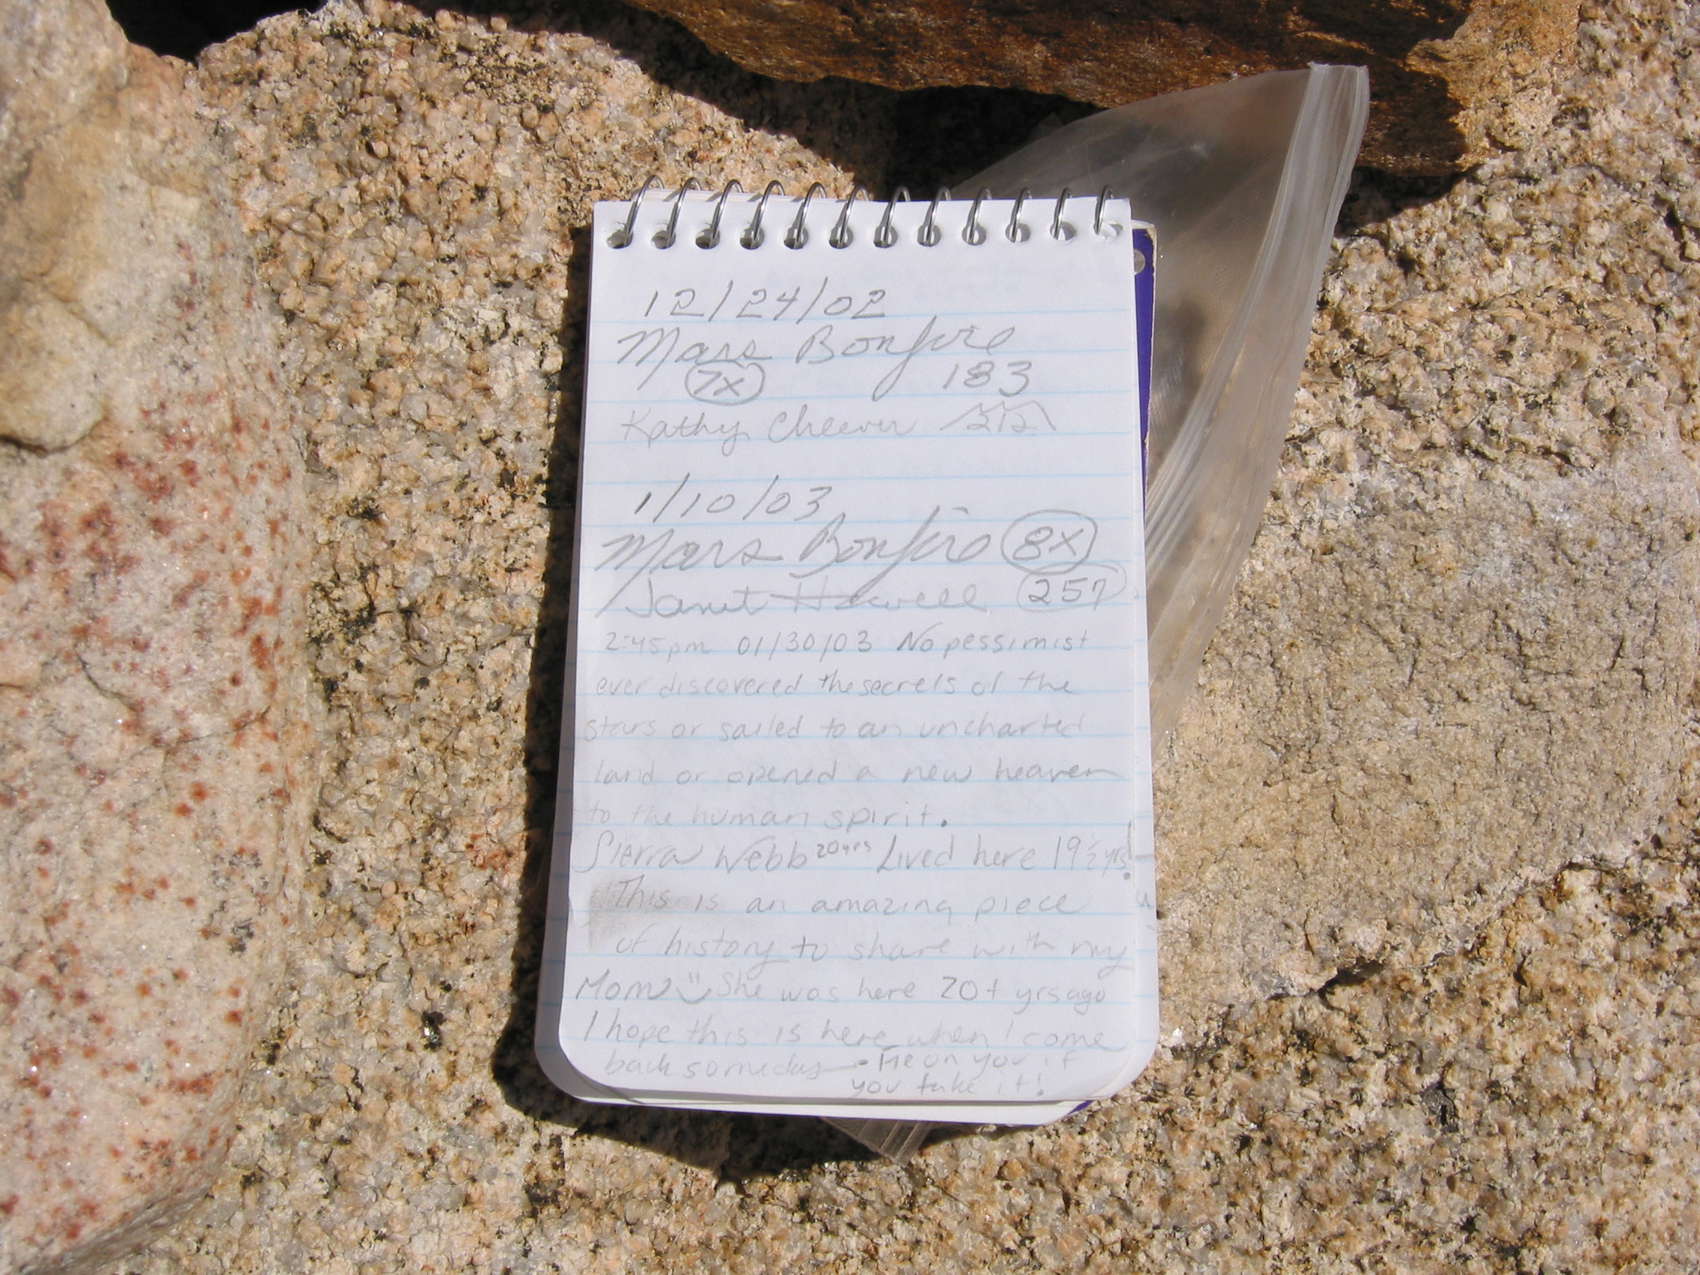 12/24/02
Mars Bonfire
7x 183
Kathy Cheever 212
1/10/03
Mars Bonfire 8x
Janet Howell 257
2:45pm 01/30/03 No pessimist
ever discovered the secrets of the
stars or sailed to an uncharted
land or opened a new heaven
to the human spirit.
Sierra Webb 20yrs Lived here 19 1/2 yrs!
This is an amazing piece
of history to share with my
Mom She was here 20+ yrs ago
I hope this is here when I come
back someday - Fie on you if
you take it!